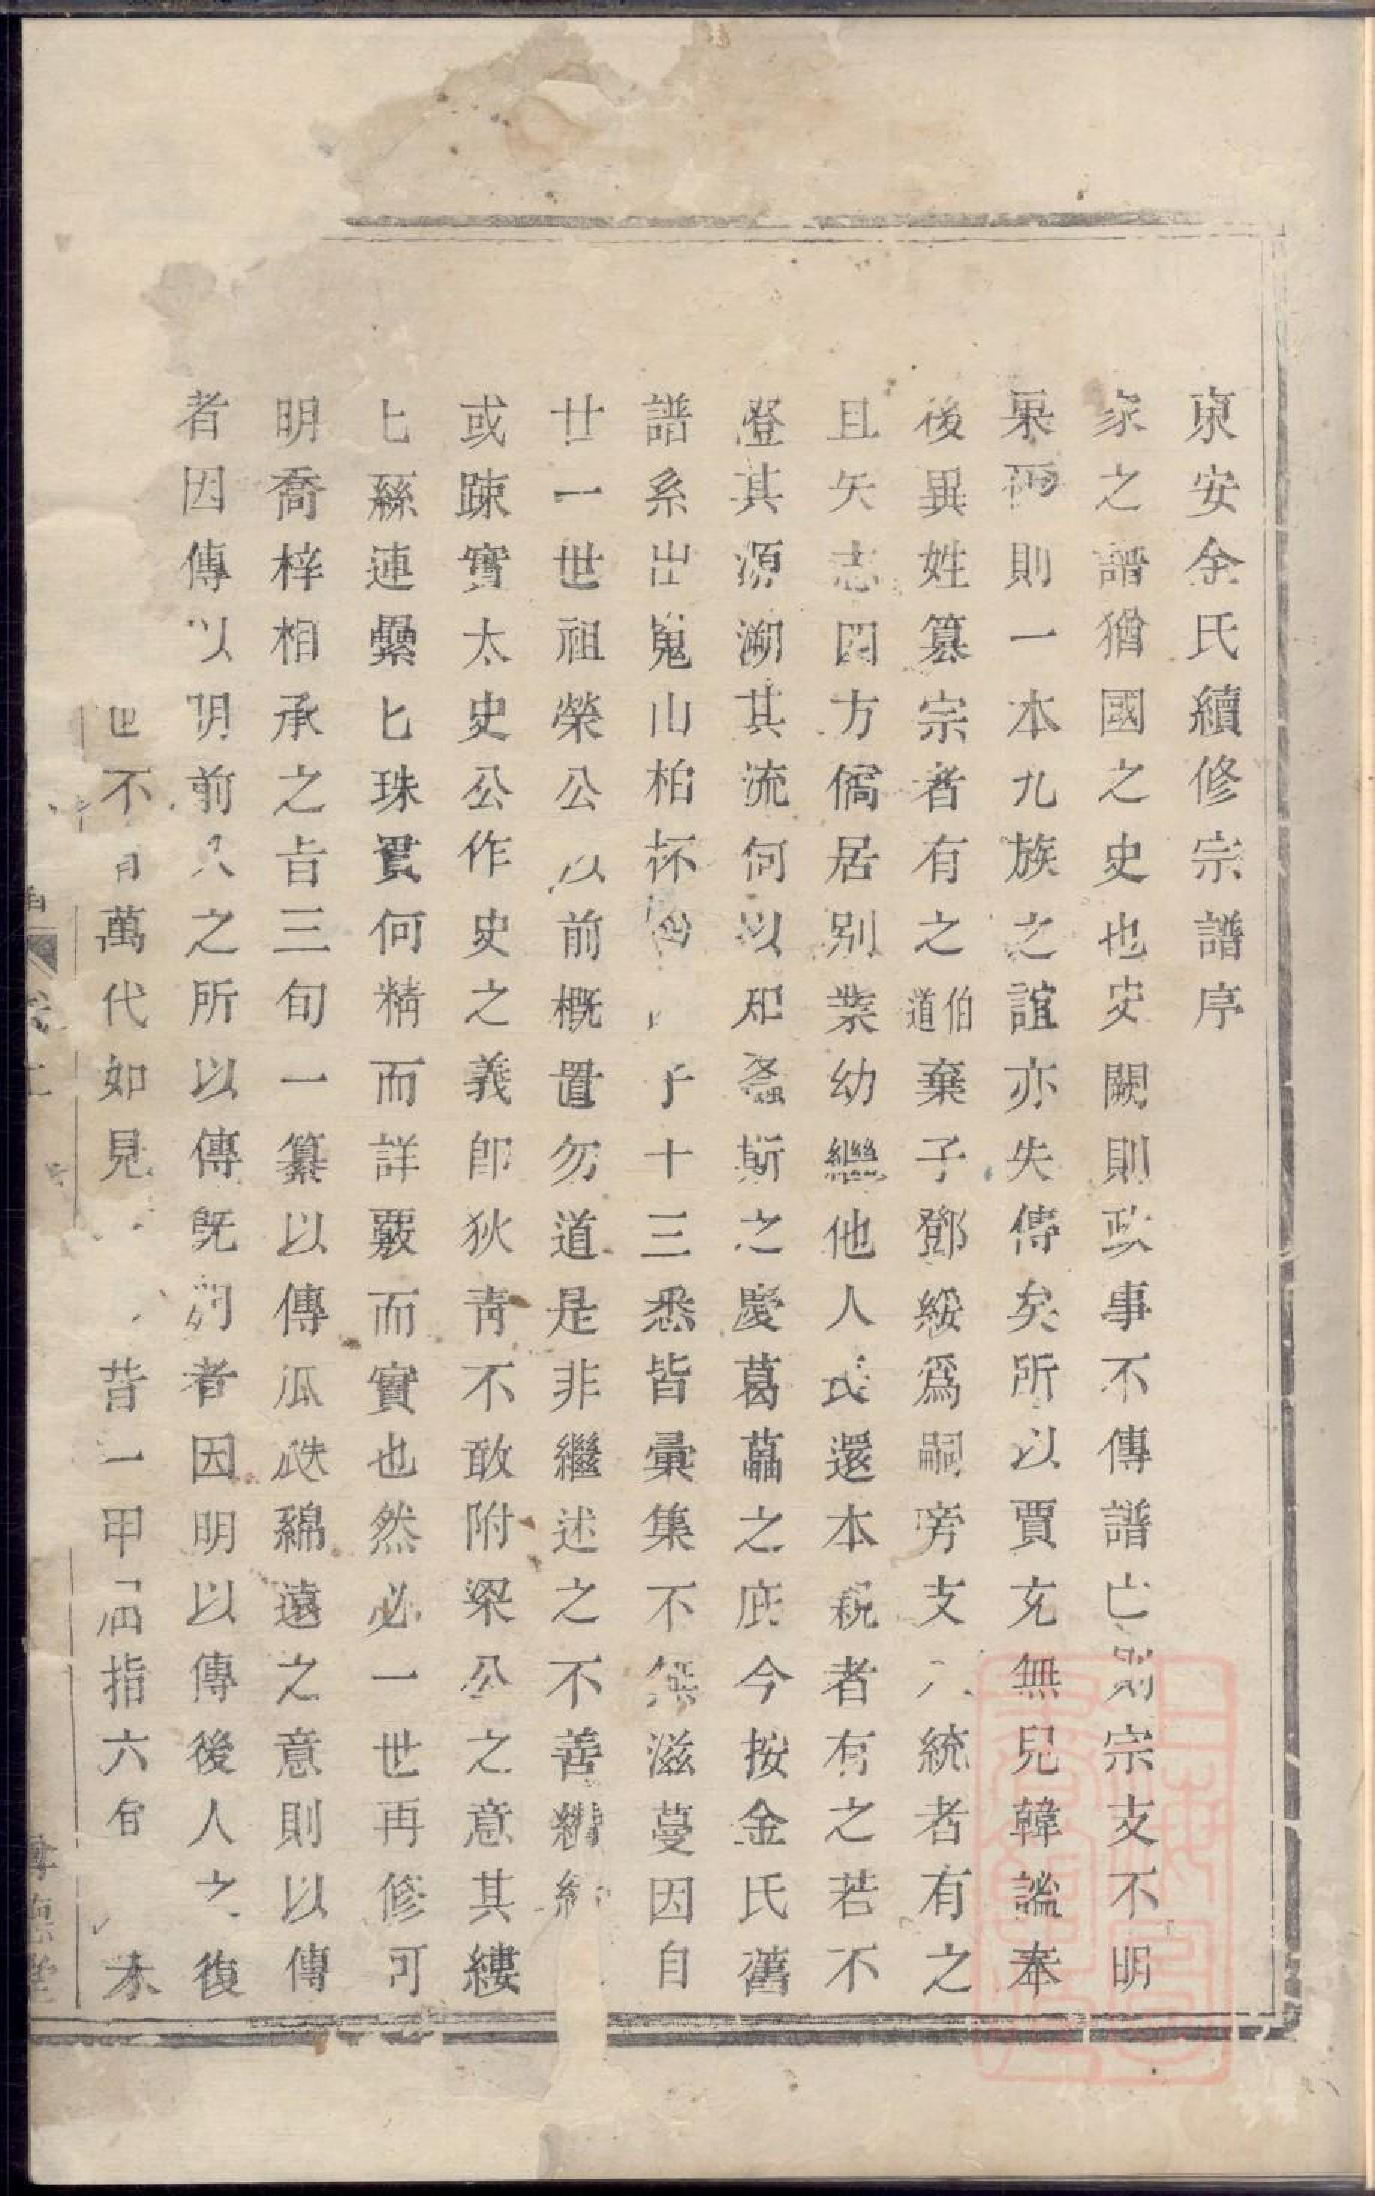 東安金氏續修宗譜序
家之譜猶國之史也史闕則政事不傳譜亡則宗支不明
果爾則一本九族之誼亦失傳矣所以賈充無兒韓謐奉
後異姓篡宗者有之伯道棄子鄧綏爲嗣旁支入統者有之
且矢志四方僑居別業幼繼他人長還本親者有之若不
澄其源溯其流何以衍螽斯之慶葛藟之庇今按金氏舊
譜系出嵬山柏杯公子十三悉皆彙集不無滋蔓因自
廿一世祖榮公以前概置勿道是非繼述之不善
或踈實太史公作史之義卽狄靑不敢附梁公之意其縷
匕縣連纍匕珠貫何精而詳覈而實也然必一世再修可
明喬梓相承之旨三旬一纂以傳瓜瓞綿遠之意則以傳
者因傳以明前人之所以傳旣明者因明以傳後人之復
不萬代如見昔一甲屈指六旬未
敦德堂